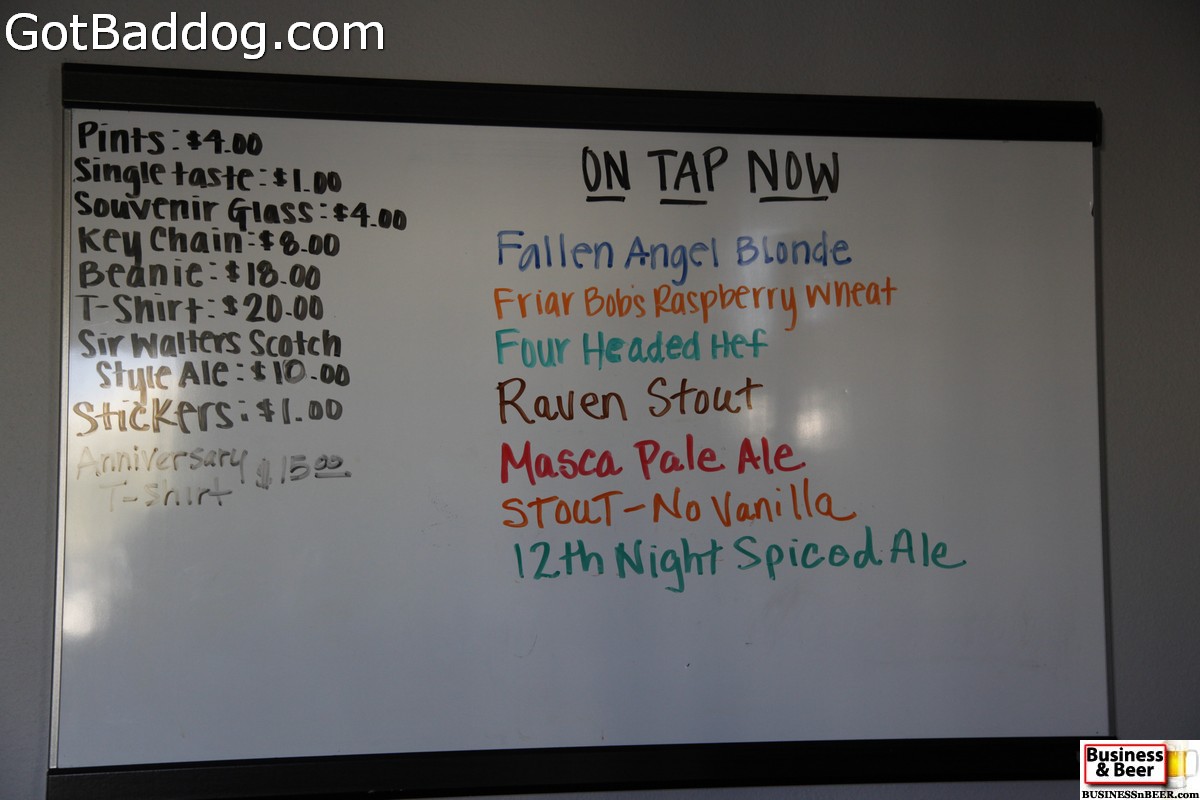 GotBaddog.com
Pints: $4.00
Single taste: $1.00
Souvenir Glass: $4.00
Key Chain: $8.00
Beanie: $18.00
T-Shirt: $20.00
Sir Walters Scotch
Style Ale: $10.00
Stickers: $1.00
Anniversary $15.00
T-Shirt
ON TAP NOW
Fallen Angel Blonde
Friar Bob's Raspberry Wheat
Four Headed Hef
Raven Stout
Masca Pale Ale
STOUT-No Vanilla
12th Night Spiced Ale
Business
& Beer
BUSINESSnBEER.com